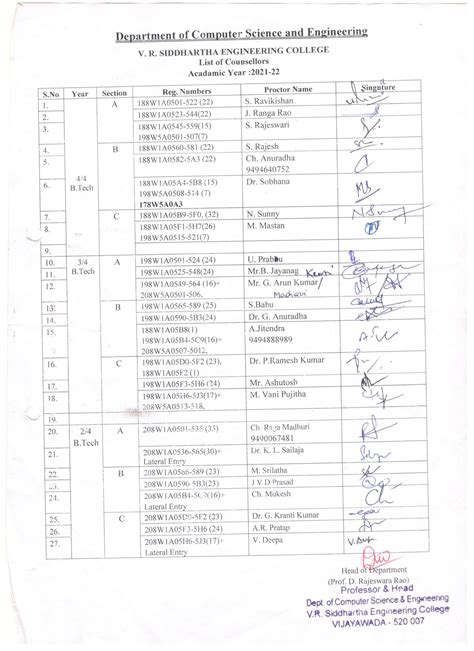 Department of Computer Science and Engineering
V. R. SIDDHARTHA ENGINEERING COLLEGE
List of Counsellors
Acadamic Year :2021-22
S.No Year Section Reg. Numbers Proctor Name Signature
1. A 188W1A0501-522 (22) S. Ravikishan
2. 188W1A0523-544(22) J. Ranga Rao
3. 188W1A0545-559(15) S. Rajeswari
198W5A0501-507(7)
4. B 188W1A0560-581 (22) S. Rajesh
5. 188W1A0582-5A3 (22) Ch. Anuradha
9494640752
4/4
B.Tech
6. 188W1A05A4-5B8 (15) Dr. Sobhana
198W5A0508-514 (7)
178W5A0A3
7. C 188W1A05B9-5F0, (32) N. Sunny N Sunny
8. 188W1A05F1-5H7(26) M. Mastan
198W5A0515-521(7)
9.
10. 3/4 A 198W1A0501-524 (24) U. Prabhu
11. B.Tech 198W1A0525-548(24) Mr.B. Jayanag
12. 198W1A0549-564 (16)+ Mr. G. Arun Kumar/
208W5A0501-506, Madhavi
13. B 198W1A0565-589 (25) S.Babu
14. 198W1A0590-5B3(24) Dr. G. Anuradha
15. 188W1A05B8(1) A.Jitendra
198W1A05B4-5C9(16)+ 9494888989
208W5A0507-5012,
16. C 198W1A05D0-5F2 (23), Dr. P.Ramesh Kumar
188W1A05F2 (1)
17. 198W1A05F3-5H6 (24) Mr. Ashutosh
18. 198W1A05H6-5J3(17)+ M. Vani Pujitha
208W5A0513-518,
19.
20. 2/4 A 208W1A0501-535 (35) Ch Raga Madhuri
B.Tech 9490067481
21. 208W1A0536-565(30)+ Dr. K. L. Sailaja
Lateral Entry
22. B 208W1A0566-589 (23) M. Srilatha
208W1A0590-5B3(23) J V D Prasad
24. 208W1A05B4-5C7(16)+ Ch. Mukesh
Lateral Entry
25. C 208W1A05D0-5F2 (23) Dr. G. Kranti Kumar
26. 208W1A05F3-5H6 (24) A.R. Pratap
27. 208W1A05H6-5J3(17)+ V. Deepa
Lateral Entry
Head of Department
(Prof. D. Rajeswara Rao)
Professor & Head
Dept. of Computer Science & Engineering
V.R. Siddhartha Engineering College
VIJAYAWADA - 520 007